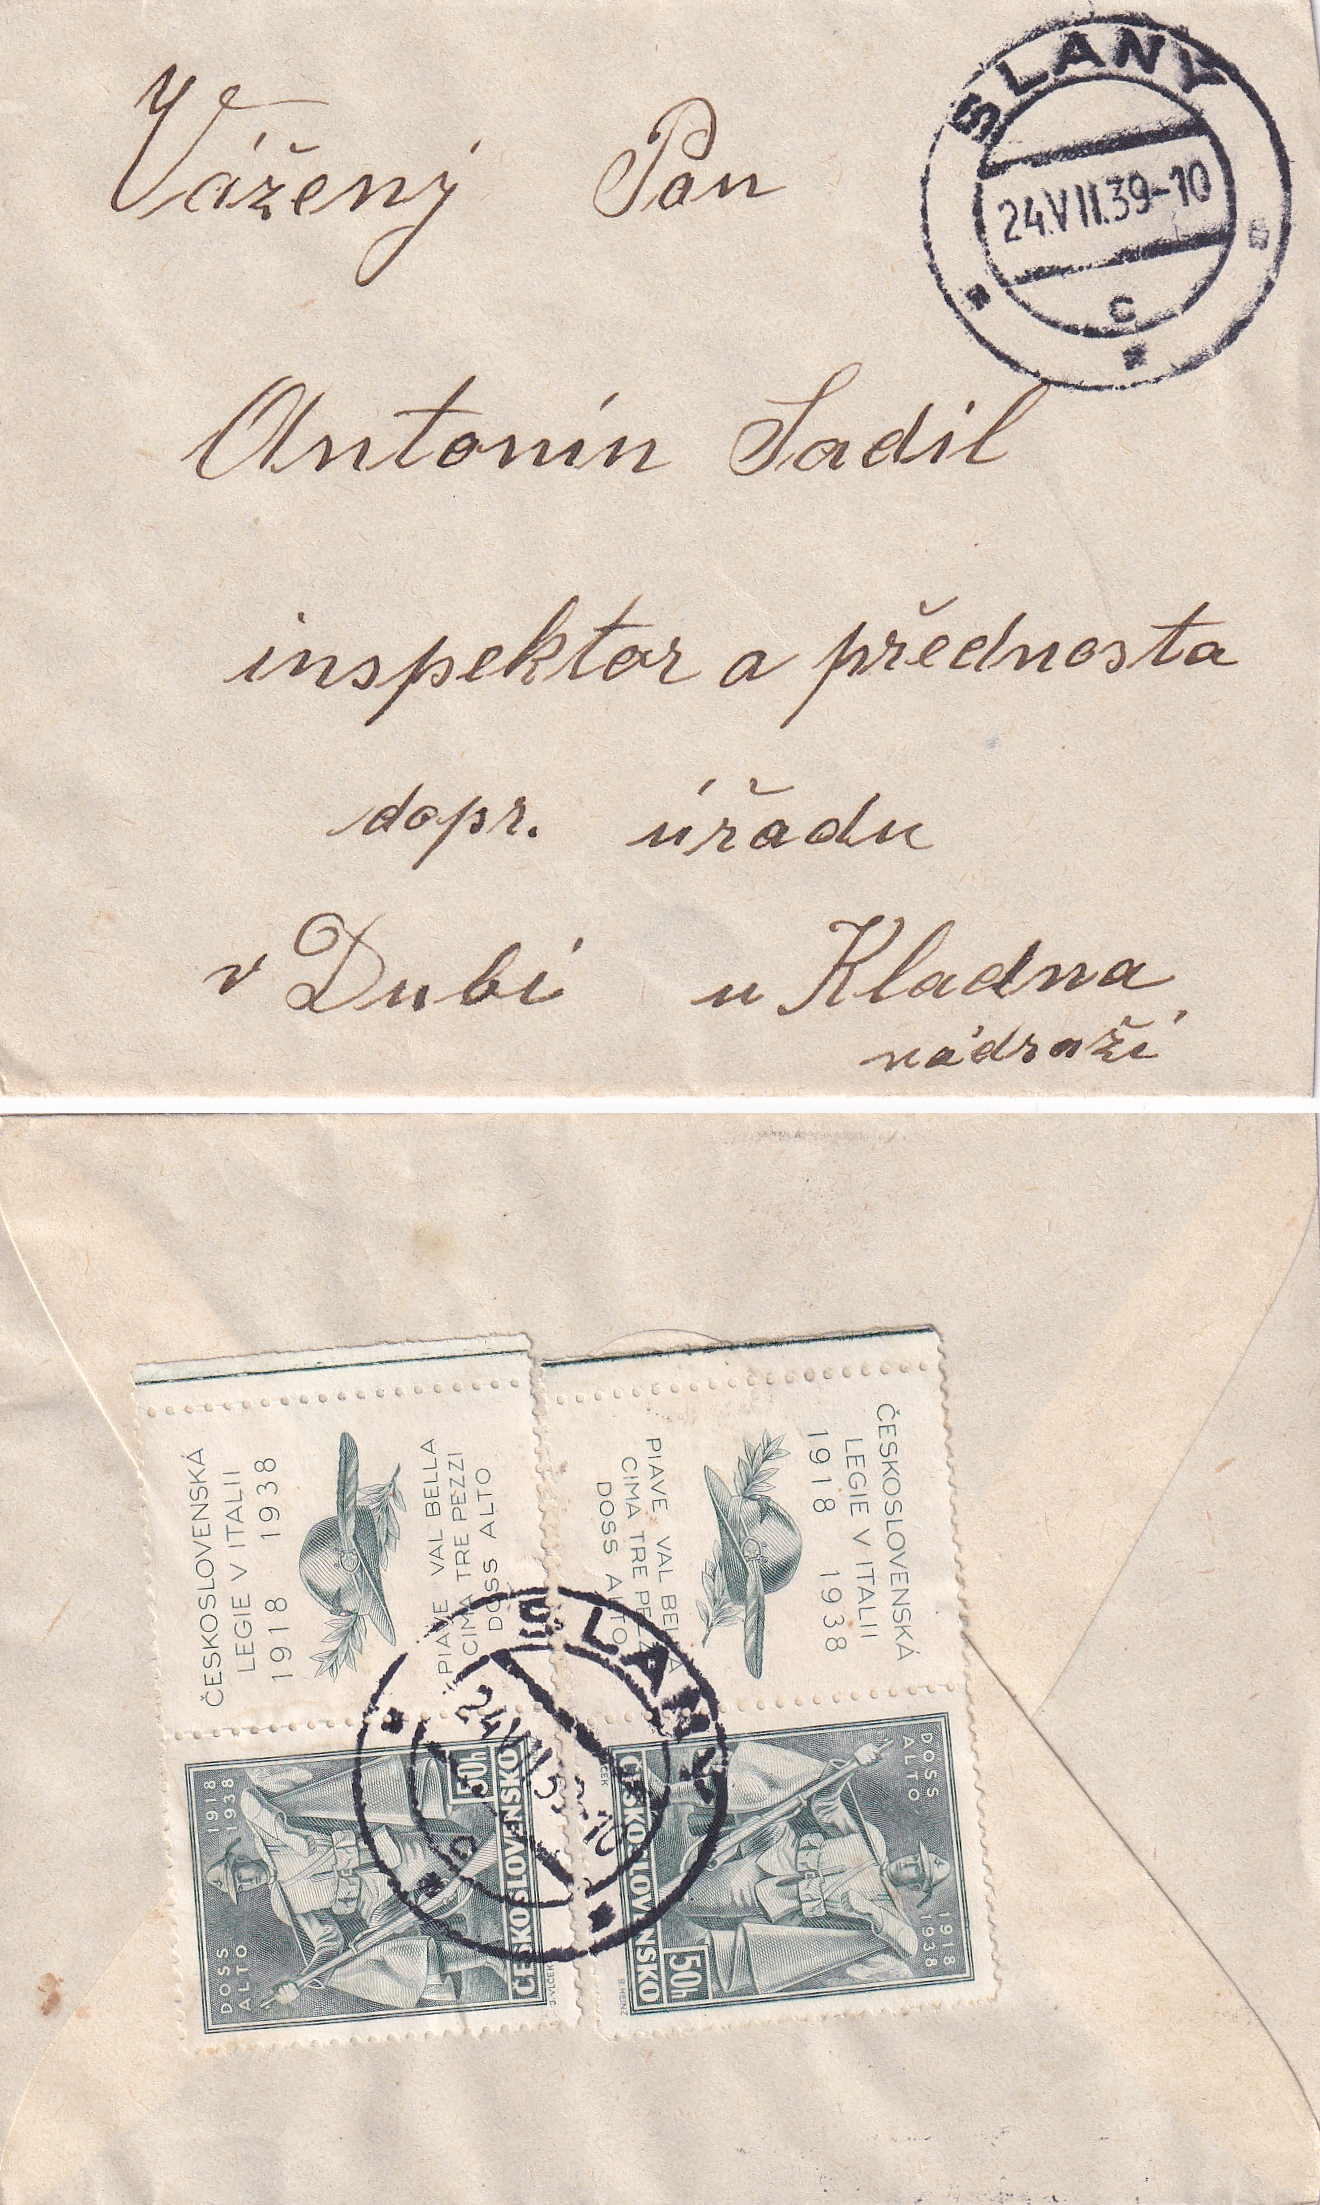 Vážený Pan
Antonín Sadil
inspektor a přednosta
dopr. úřadu
v Dubí u Kladna
nádraží
SLANÝ
24.VII.39-10
C
ČESKOSLOVENSKÁ
LEGIE V ITALII
1918 1938
PIAVE VAL BELLA
CIMA TRE PEZZI
DOSS ALTO
1918
1938
DOSS
ALTO
50h
ČESKOSLOVENSKO
J.VLČEK
ČESKOSLOVENSKÁ
LEGIE V ITALII
1918 1938
PIAVE VAL BELLA
CIMA TRE PEZZI
DOSS ALTO
DOSS
ALTO
1918
1938
50h
ČESKOSLOVENSKO
B.HEINZ
SLANÝ
24.VII.39-10
C